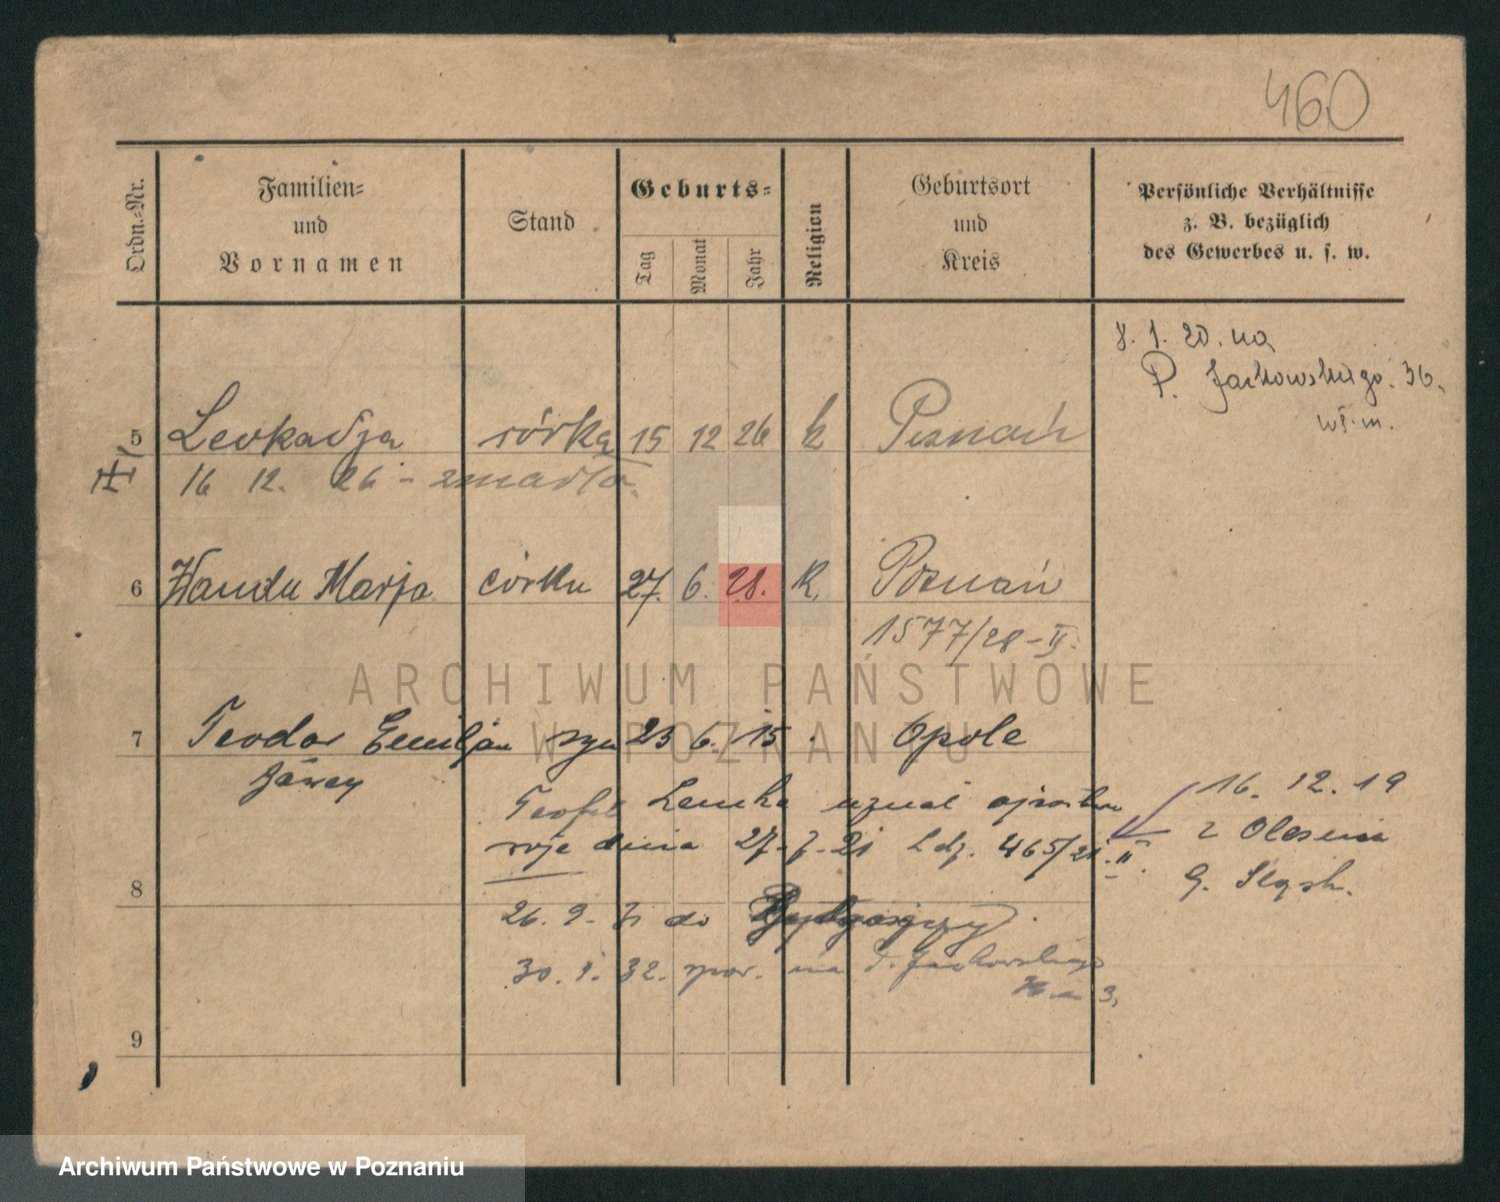 460
Ordn.-Nr.
Familien-
und
Vornamen
Stand
Geburts-
Tag
Monat
Jahr
Religion
Geburtsort
und
Kreis
Persönliche Verhältnisse
z. B. bezüglich
des Gewerbes u. s. w.
8. 1. 20. na
P. Jackowskiego. 36.
5 Leokadja córka 15 12 26 k Poznań
16 12. 26 - zmarła.
6 Wanda Marja córka 27. 6. 28. k. Poznań
1577/28-II.
ARCHIWUM PAŃSTWOWE
W POZNANIU
7 Teodor Emiljan syn 23 6. 15. Opole
Teofil Lemka uznał ojcostwo
dnia 27-7-21 L dz. 465/21. II.
16. 12. 19
z Olesna
G. Śląsk.
8
26. 9. do Bydgoszczy
30. 1. 32. na P. Jackowskiego
3,
9
Archiwum Państwowe w Poznaniu